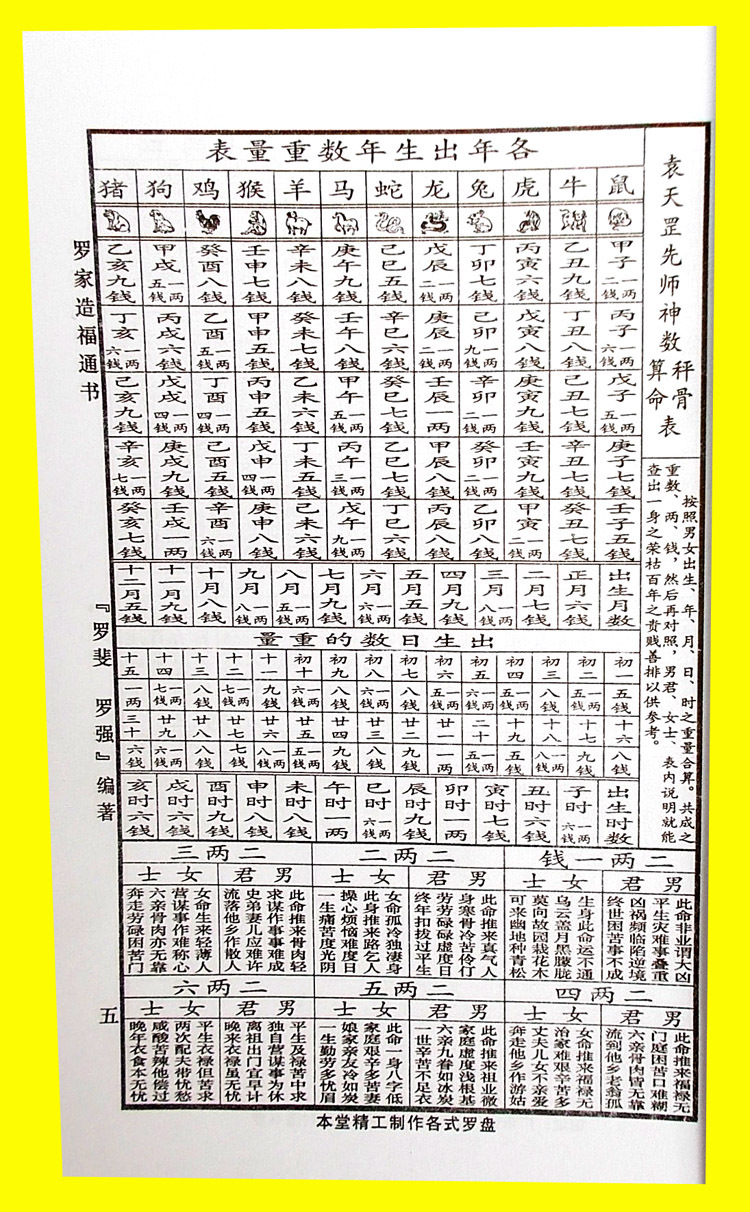 袁天罡先师神数
秤骨
算命表
按照男女出生、年、月、日、时之重量合算。共成之
重数、两、钱,然后再对照,男君、女士、表内说明就能
查出一身之荣枯百年之贵贱善排以供参考。
各年出生年数重量表
鼠 牛 虎 兔 龙 蛇 马 羊 猴 鸡 狗 猪
甲子一两二钱 乙丑九钱 丙寅六钱 丁卯七钱 戊辰一两二钱 己巳五钱 庚午九钱 辛未八钱 壬申七钱 癸酉八钱 甲戌一两五钱 乙亥九钱
丙子一两六钱 丁丑八钱 戊寅八钱 己卯一两九钱 庚辰一两二钱 辛巳六钱 壬午八钱 癸未七钱 甲申五钱 乙酉一两五钱 丙戌六钱 丁亥一两六钱
戊子一两五钱 己丑七钱 庚寅九钱 辛卯一两二钱 壬辰一两 癸巳七钱 甲午一两五钱 乙未六钱 丙申五钱 丁酉一两四钱 戊戌一两四钱 己亥九钱
庚子七钱 辛丑七钱 壬寅九钱 癸卯一两二钱 甲辰八钱 乙巳七钱 丙午一两三钱 丁未五钱 戊申一两四钱 己酉五钱 庚戌九钱 辛亥一两七钱
壬子五钱 癸丑七钱 甲寅一两二钱 乙卯八钱 丙辰八钱 丁巳六钱 戊午一两九钱 己未六钱 庚申八钱 辛酉一两六钱 壬戌一两 癸亥七钱
出生月数 正月六钱 二月七钱 三月一两八钱 四月九钱 五月五钱 六月一两六钱 七月九钱 八月一两五钱 九月一两八钱 十月八钱 十一月九钱 十二月五钱
出生日数的重量
初一 初二 初三 初四 初五 初六 初七 初八 初九 初十 十一 十二 十三 十四 十五
五钱 一两 八钱 一两五钱 一两六钱 一两五钱 八钱 一两六钱 八钱 一两六钱 九钱 一两七钱 八钱 一两七钱 一两
十六 十七 十八 十九 二十 廿一 廿二 廿三 廿四 廿五 廿六 廿七 廿八 廿九 三十
八钱 九钱 一两八钱 五钱 一两五钱 一两 九钱 八钱 九钱 一两五钱 一两八钱 七钱 八钱 一两六钱 六钱
出生时数 子时一两六钱 丑时六钱 寅时七钱 卯时一两 辰时九钱 巳时一两六钱 午时一两 未时八钱 申时八钱 酉时九钱 戌时六钱 亥时六钱
二两一钱
男君
此命非业谓大凶
平生灾难事叠重
凶祸频临陷逆境
终世困苦事不成
女士
生身此命运不通
乌云盖月黑朦胧
莫向故园栽花木
可来幽地种青松
二两二
男君
此命推来真气人
身寒骨冷苦伶仃
劳劳碌碌虚度日
终年扣拨过平生
女士
女命孤冷独凄身
此身推来路乞人
操心烦恼难度日
一生痛苦度光阴
二两三
男君
此命推来骨肉轻
求谋作事事难成
史弟妻儿应难许
流落他乡作散人
女士
女命生来轻薄人
营谋事作难称心
六亲骨肉亦无靠
奔走劳碌困苦门
二两四
男君
此命推来福禄无
门庭困苦口难糊
六亲骨肉皆无靠
流到他乡老翁孤
女士
女命推来福禄无
治家难艰辛苦多
丈夫儿女不亲爱
奔走他乡作游姑
二两五
男君
此命推来祖业微
家庭虚度浅根基
六亲九眷如冰炭
一世辛苦不足衣
女士
此命一身八字低
家庭艰辛多苦妻
娘家亲友冷如炭
一生勤劳多忧眉
二两六
男君
平生及禄苦中求
独自营谋事为休
离祖出门宜早计
晚来衣禄虽无忧
女士
平生衣禄但苦求
两次配夫带忧愁
咸酸苦辣他偿过
晚年衣食本无忧
罗家造福通书
『罗斐 罗强』编著
五
本堂精工制作各式罗盘